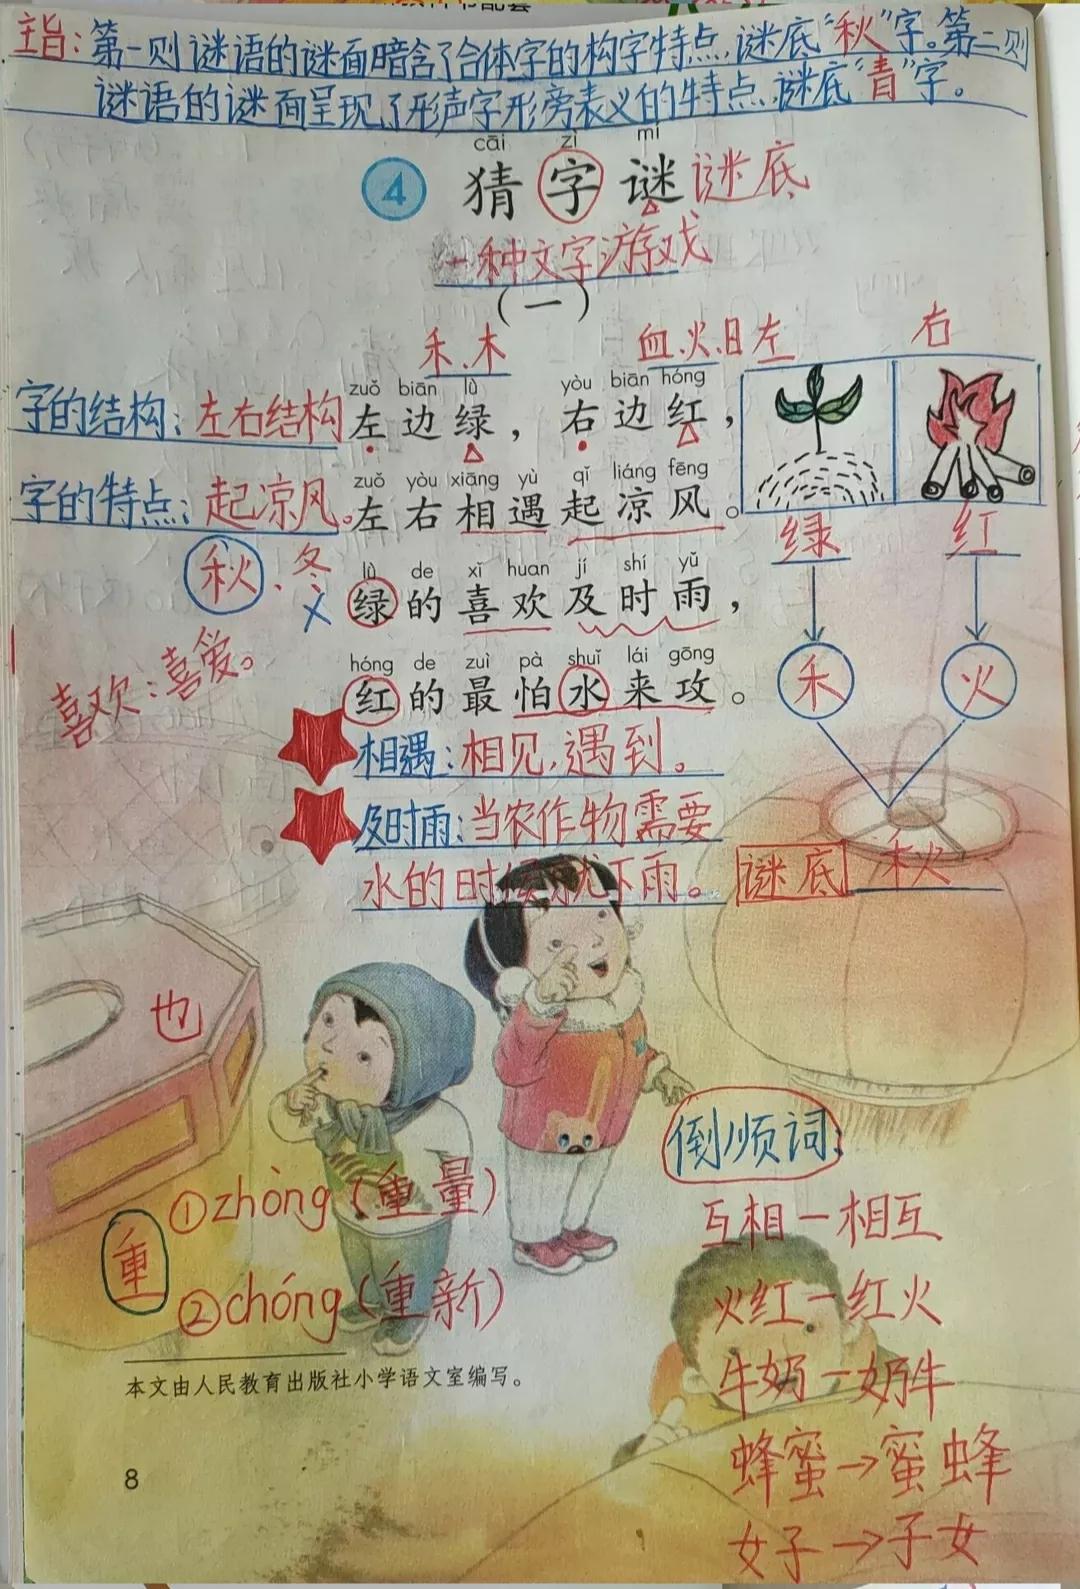 主旨：第一则谜语的谜面暗含了合体字的构字特点，谜底“秋”字。第二则
谜语的谜面呈现了形声字形旁表义的特点，谜底“青”字。
cāi zì mí
4 猜字谜 谜底
一种文字游戏
（一）
禾、木 血、火、日 左 右
zuǒ biān lǜ yòu biān hóng
字的结构：左右结构 左边绿，右边红，
zuǒ yòu xiāng yù qǐ liáng fēng
字的特点：起凉风。左右相遇起凉风。
绿 红
秋、冬
lǜ de xǐ huan jí shí yǔ
绿的喜欢及时雨，
hóng de zuì pà shuǐ lái gōng
红的最怕水来攻。
禾 火
喜欢：喜爱。
相遇：相见，遇到。
及时雨：当农作物需要
水的时候就下雨。
谜底 秋
也
倒顺词：
重 ①zhòng（重量）
②chóng（重新）
互相—相互
火红—红火
牛奶—奶牛
蜂蜜→蜜蜂
女子→子女
本文由人民教育出版社小学语文室编写。
8